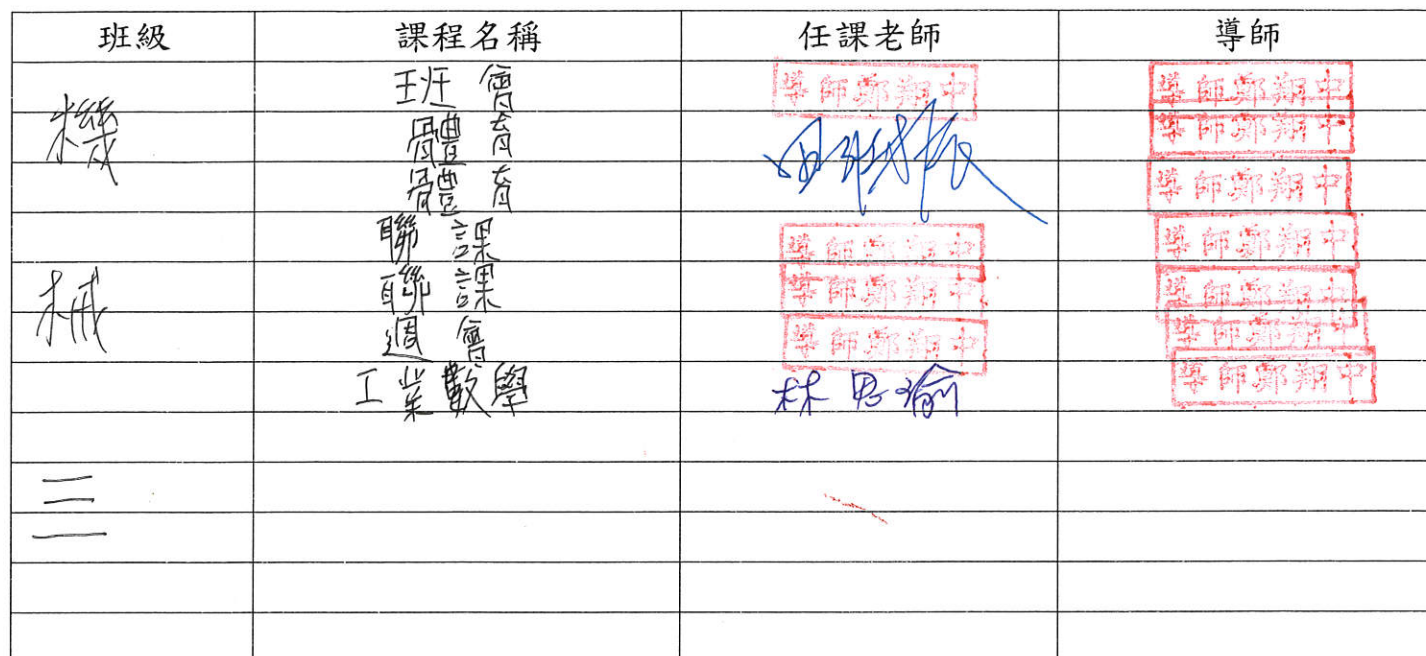 班級 課程名稱 任課老師 導師
機 班會 導師鄭翔中 導師鄭翔中
體育 導師鄭翔中
體育 導師鄭翔中
聯課 導師鄭翔中 導師鄭翔中
械 聯課 導師鄭翔中 導師鄭翔中
週會 導師鄭翔中 導師鄭翔中
工業數學 林思瑜 導師鄭翔中
三